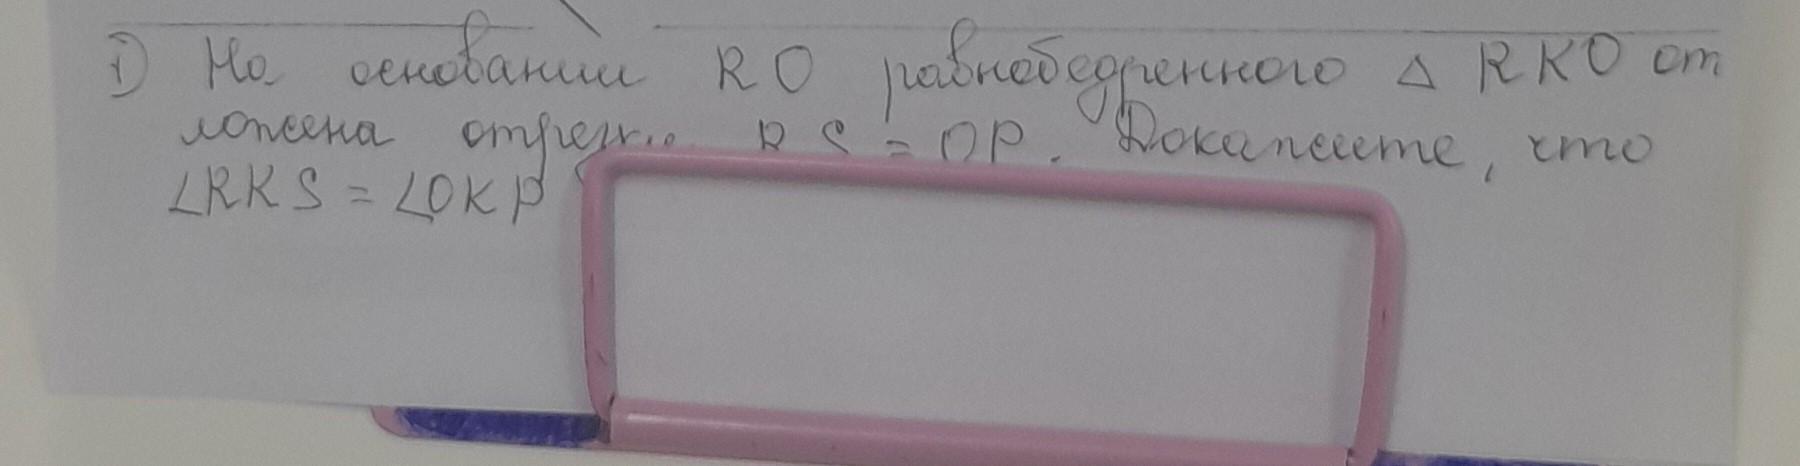 1) На основании RO равнобедренного △ RKO от
ложена отрезки RS = OP. Докажите, что
∠RKS = ∠OKP